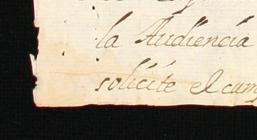 la Audiencia
solicite el cum